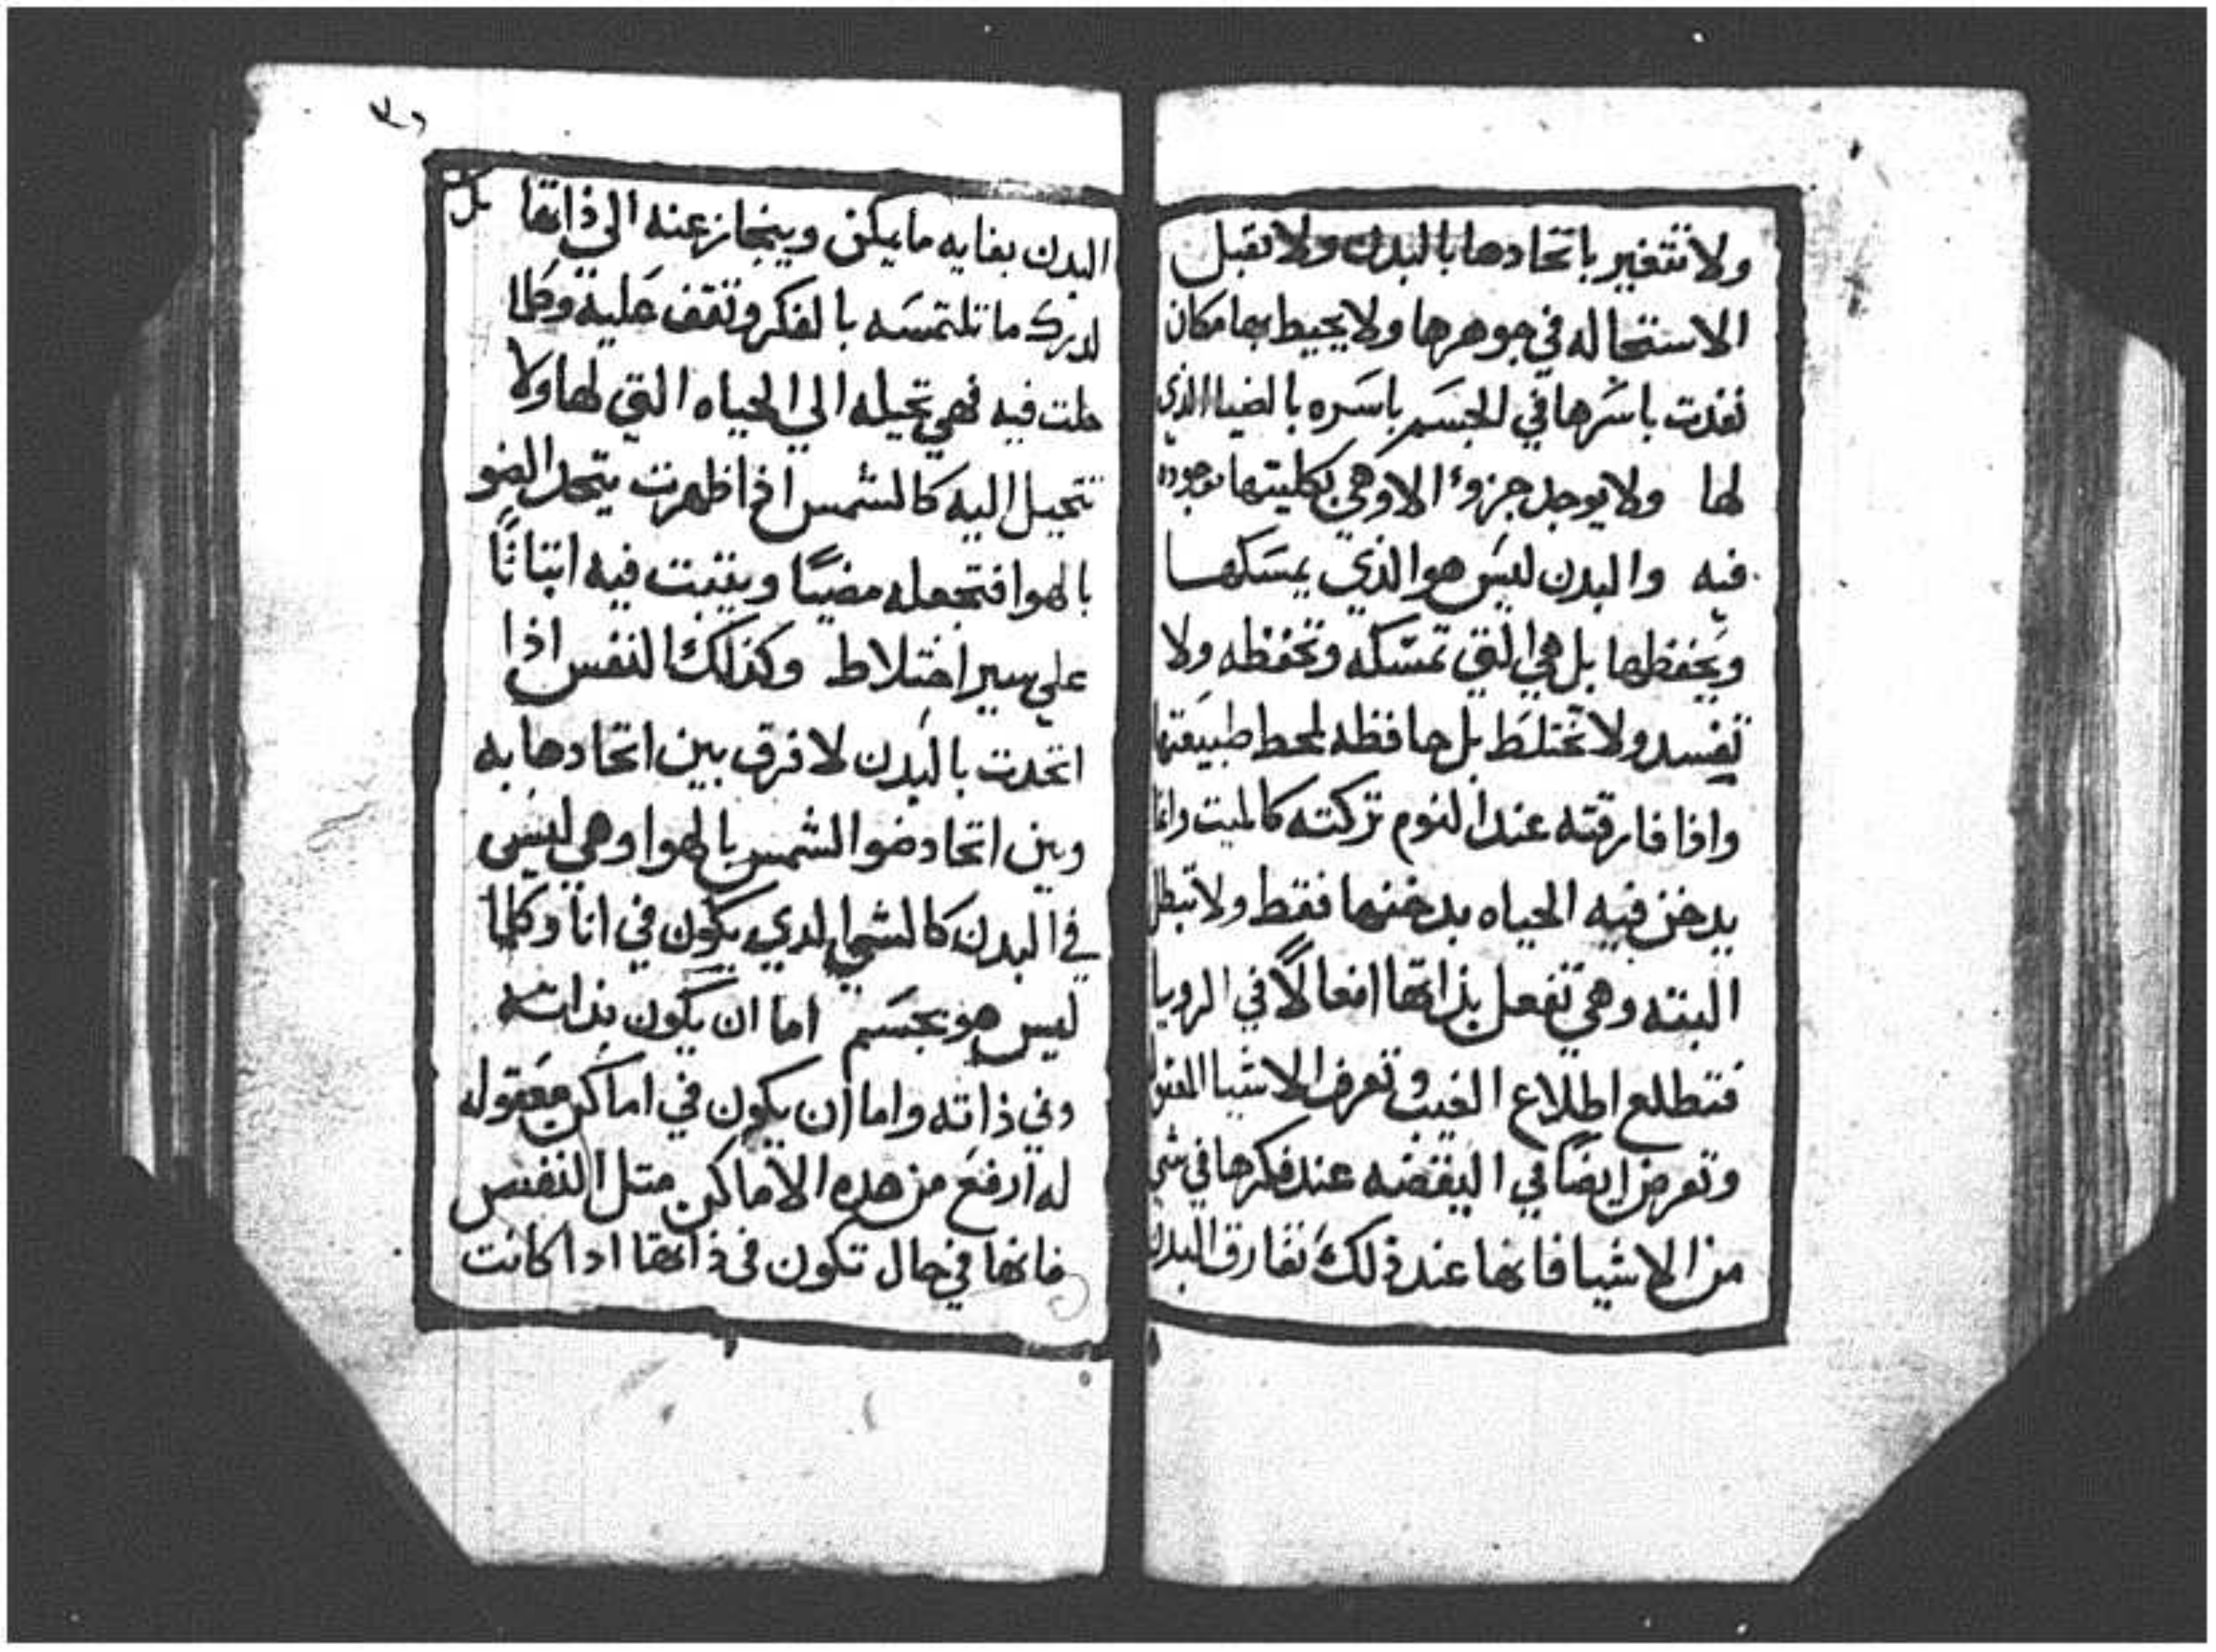 ولا تتغير باتحادها بالبدن ولا تقبل
الاستحاله في جوهرها ولا يحيط بها مكان
نفدت باسرها في الجسم باسره بالضيا الذي
لها ولا يوجد جزوء الا وهي بكليتها موجوده
فيه والبدن ليس هو الذي يمسكها
ويحفظها بل هي التي تمسكه وتحفظه ولا
تفسد ولا تختلط بل حافظه لمحط طبيعتها
واذا فارقته عند النوم تركته كالميت دايما
يدخن فيه الحياه بدخنها فقط ولا تبطل
البته وهي تفعل بذاتها افعالًا في الرويا
فتطلع اطلاع الغيب وتعرف الاشيا
وتعرض ايضًا في اليقضه عند فكرها في شي
من الاشيا فانها عند ذلك تفارق البدن
٣٦
البدن بغايه ما يمكن وينحاز عنه الي ذاتها بل
لدرك ما تلتمسه بالفكر وتقف عليه وكلما
حلت فيه فهي تحيله الي الحياه التي لها ولا
تتحيل اليه كالشمس اذا ظهرت يتحد الضو
بالهوا فتجعله مضيًا ويثبت فيه اثباتًا
علي سير اختلاط وكذلك النفس اذا
اتحدت بالبدن لا فرق بين اتحادها به
وبين اتحاد ضو الشمس بالهوا وهي ليس
في البدن كالشي الدي يكون في انا وكلما
ليس هو بجسم اما ان يكون بداته
وفي ذاته واما ان يكون في اماكن معقوله
له ارفع من هده الاماكن متل النفس
فانها في حال تكون في ذاتها ادا كانت